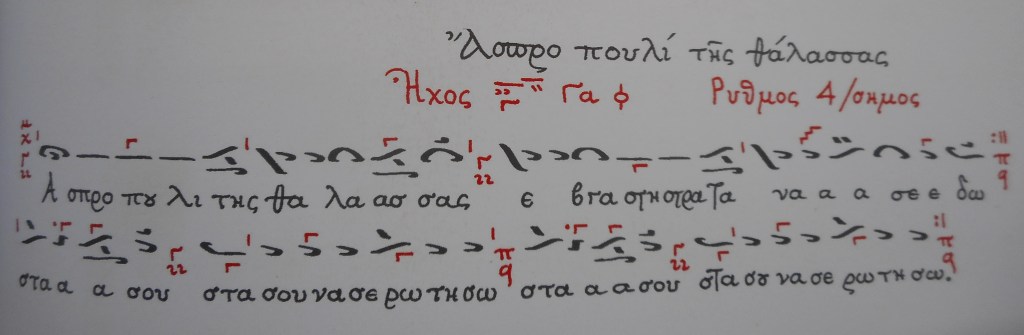 Ἄσπρο πουλί τῆς θάλασσας
Ἦχος Γα φ Ρυθμος 4/σημος
Α σπρο που λι της θα λα ασ σας ε βγα στη στρα τα να α α σε ε δω
στα α α σου στα σου να σε ρω τη σω στα α α σου στα σου να σε ρω τη σω.